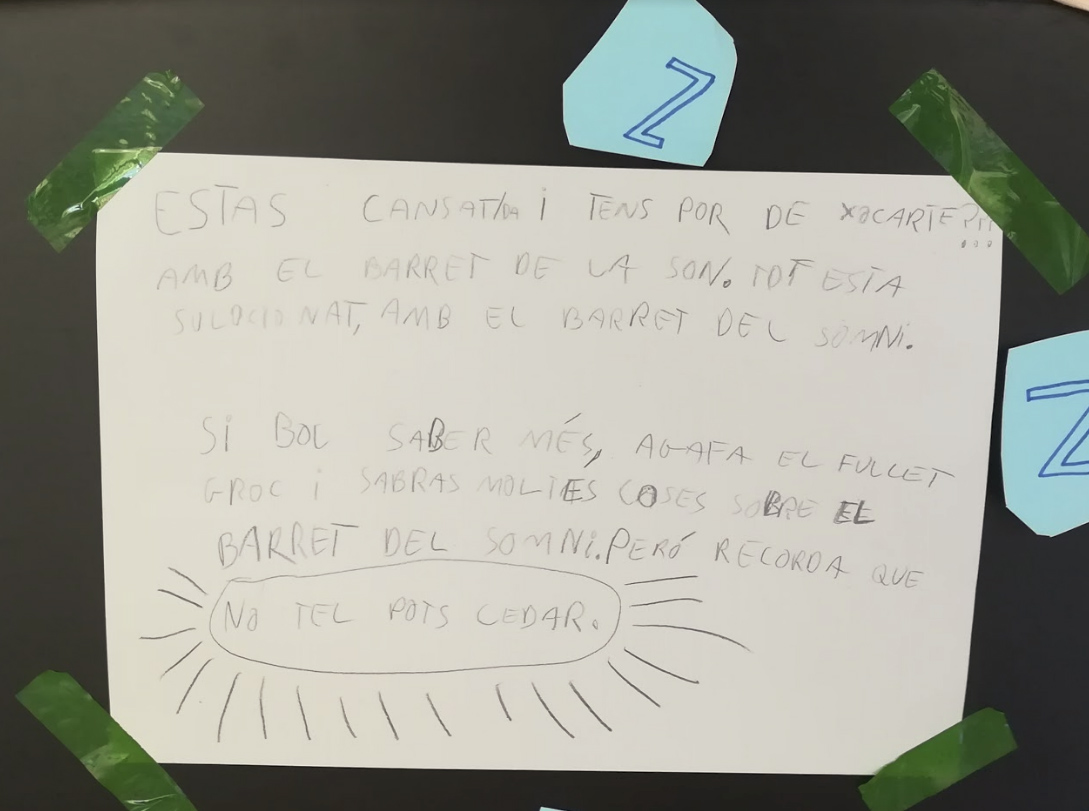 Z
ESTAS CANSAT/DA i TENS POR DE XOCARTE???
AMB EL BARRET DE LA SON. TOT ESTA
SULOCIONAT, AMB EL BARRET DEL SOMNi.
Z
Si BOL SABER MÉS, AGAFA EL FULLET
GROC i SABRAS MOLTES COSES SOBRE EL
BARRET DEL SOMNi. PERÓ RECORDA QUE
NO TEL POTS CEDAR.